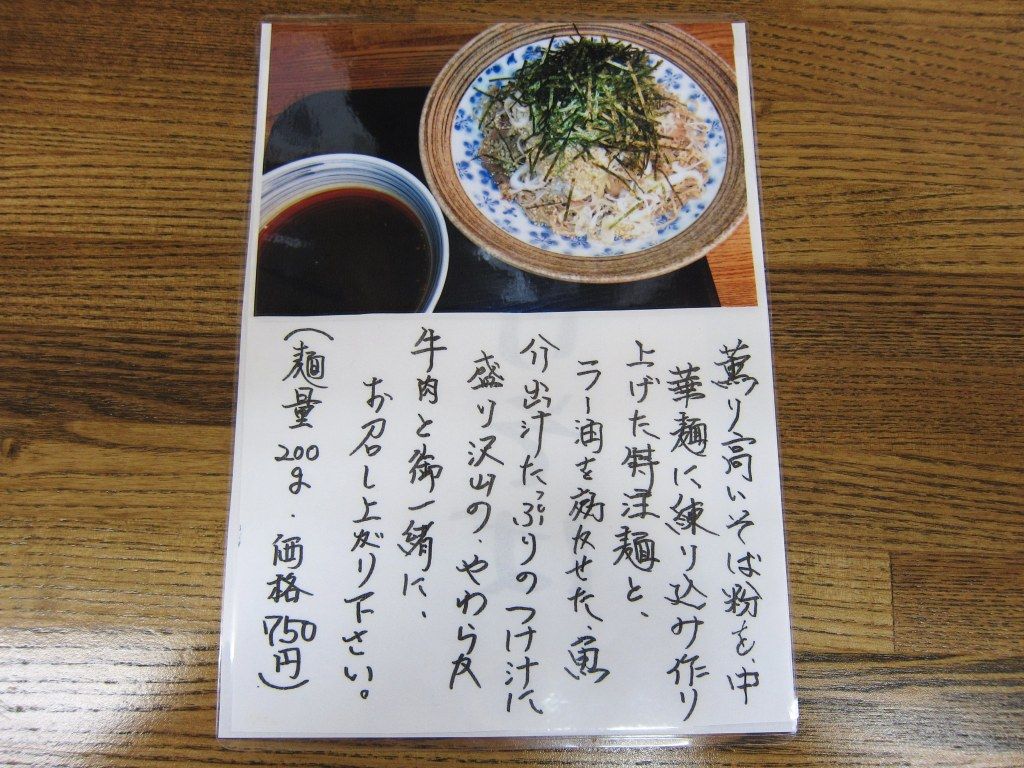 薫り高いそば粉を、中
華麺に練り込み作り
上げた特注麺と、
ラー油を効かせた、魚
介出汁たっぷりのつけ汁に
盛り沢山の、やわらか
牛肉と御一緒に、
お召し上がり下さい。
(麺量200g．価格750円)